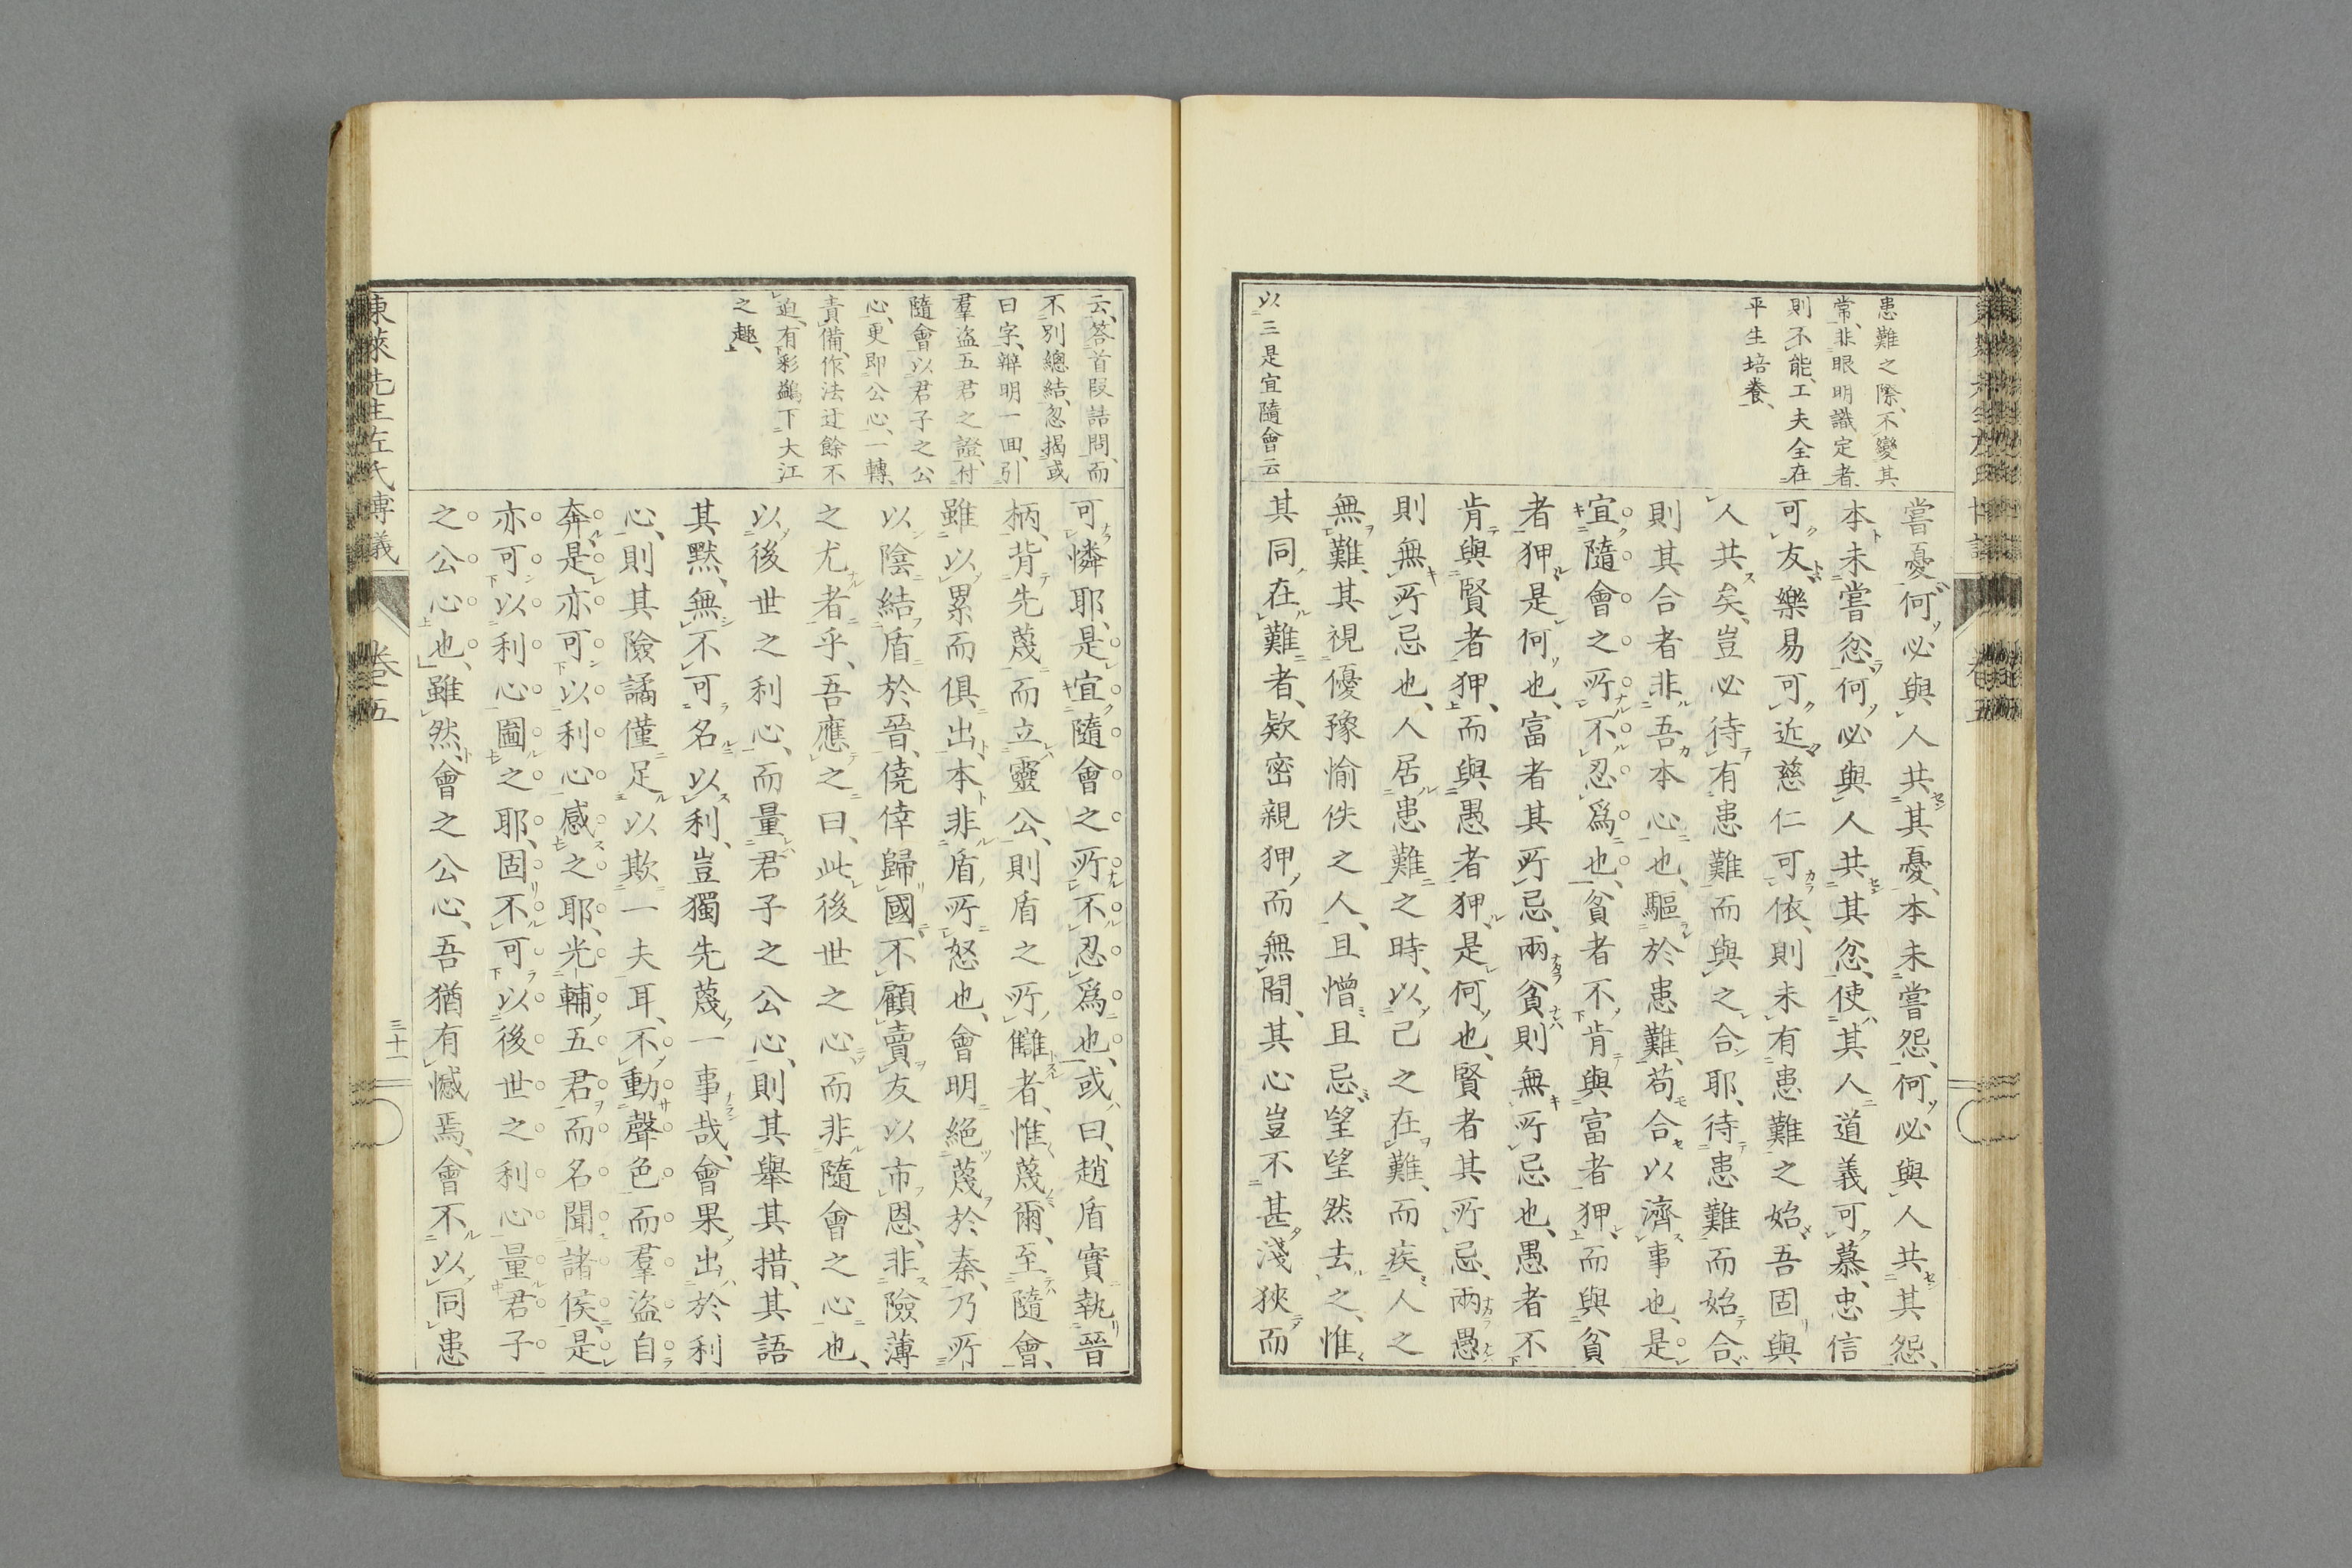 患難之際、不變其
常、非眼明識定者、
則不能、工夫全在
平生培養、
以三是宜隨會云
嘗憂、何必與人共其憂、本未嘗怨、何必與人共其怨、
本未嘗忿、何必與人共其忿、使其人道義可慕、忠信
可友、樂易可近、慈仁可依、則未有患難之始、吾固與
人共矣、豈必待有患難而與之合耶、待患難而始合、
則其合者非吾本心也、驅於患難、苟合以濟事也、是
宜隨會之所不忍爲也、貧者不肯與富者狎、而與貧
者狎、是何也、富者其所忌、兩貧則無所忌也、愚者不
肯與賢者狎、而與愚者狎、是何也、賢者其所忌、兩愚
則無所忌也、人居患難之時、以己之在難、而疾人之
無難、其視優豫愉佚之人、且憎且忌、望望然去之、惟
其同在難者、欵密親狎、而無間、其心豈不甚淺狹而
云、答首段詰問、而
不別總結、忽揭或
曰字、辯明一囬、引
羣盗五君之證、付
隨會以君子之公
心、更即公心、一轉、
責備、作法迂餘不
迫、有彩鷁下大江
之趣、
可憐耶、是宜隨會之所不忍爲也、或曰、趙盾實執晉
柄、背先蔑而立靈公、則盾之所讎者、惟蔑爾、至隨會、
雖以累而俱出、本非盾所怒也、會明絕蔑於秦、乃所
以陰結盾於晉、僥倖歸國、不顧賣友以市恩、非險薄
之尤者乎、吾應之曰、此後世之心而非隨會之心也、
以後世之利心、而量君子之公心、則其舉其措、其語
其默、無不可名以利、豈獨先蔑一事哉、會果出於利
心、則其險譎僅足以欺一夫耳、不動聲色、而羣盗自
奔、是亦可以利心感之耶、光輔五君、而名聞諸侯、是
亦可以利心圖之耶、固不可以後世之利心量君子
之公心也、雖然、會之公心、吾猶有憾焉、會不以同患
東萊先生左氏博議
卷五
三十一